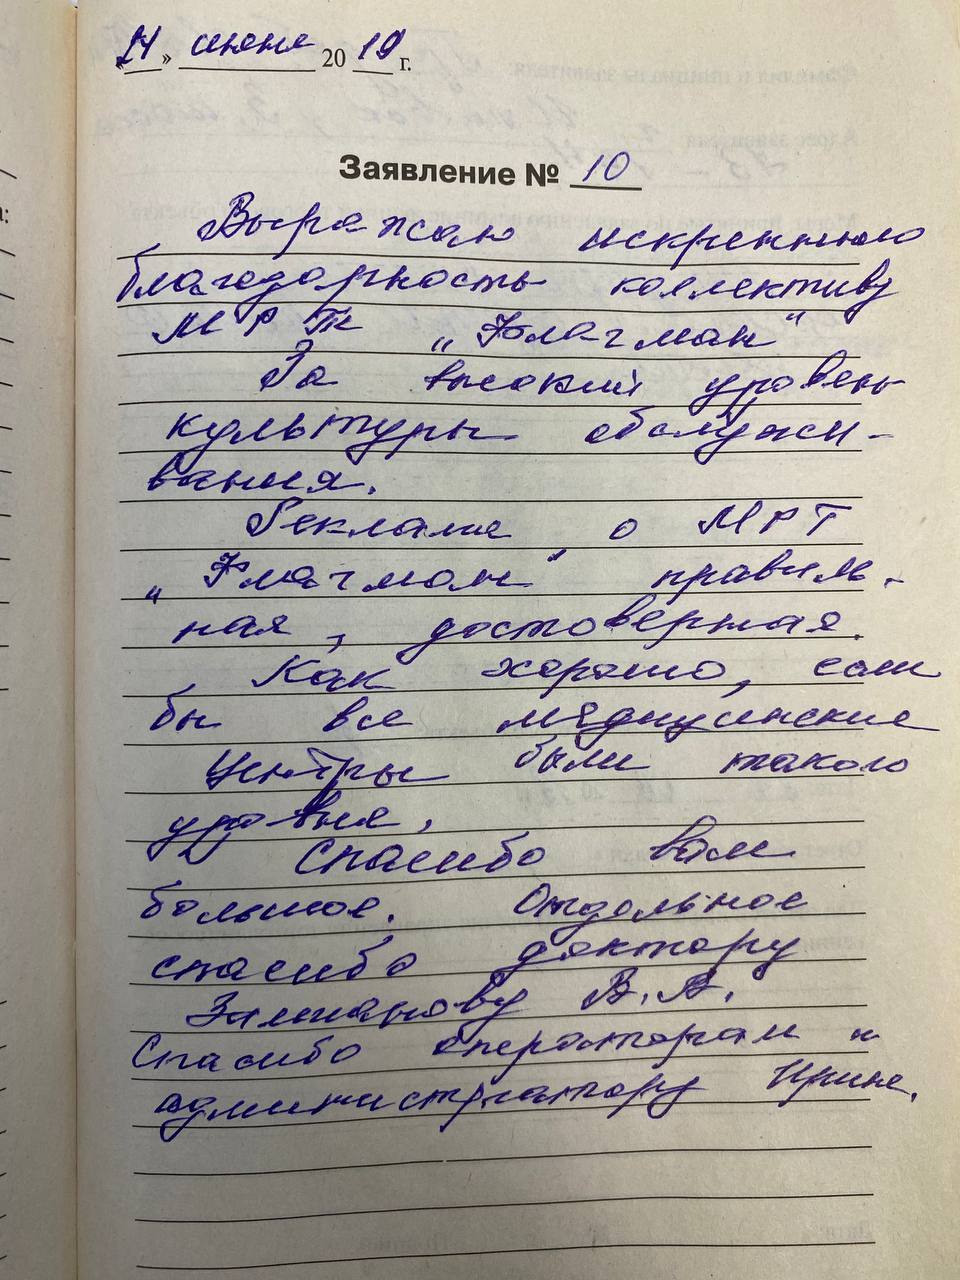 « 21 » июня 20 19 г.
Заявление № 10
Выражаю искреннюю
благодарность коллективу
МРТ „Флагман"
За высокий уровень
культуры обслужи-
вания.
Реклама о МРТ
„Флагман" правиль-
ная, достоверная.
Как хорошо, если
бы все медицинские
центры были такого
уровня.
Спасибо вам
большое. Отдельное
спасибо доктору
В. А.
Спасибо операторам и
администратору Ирине.